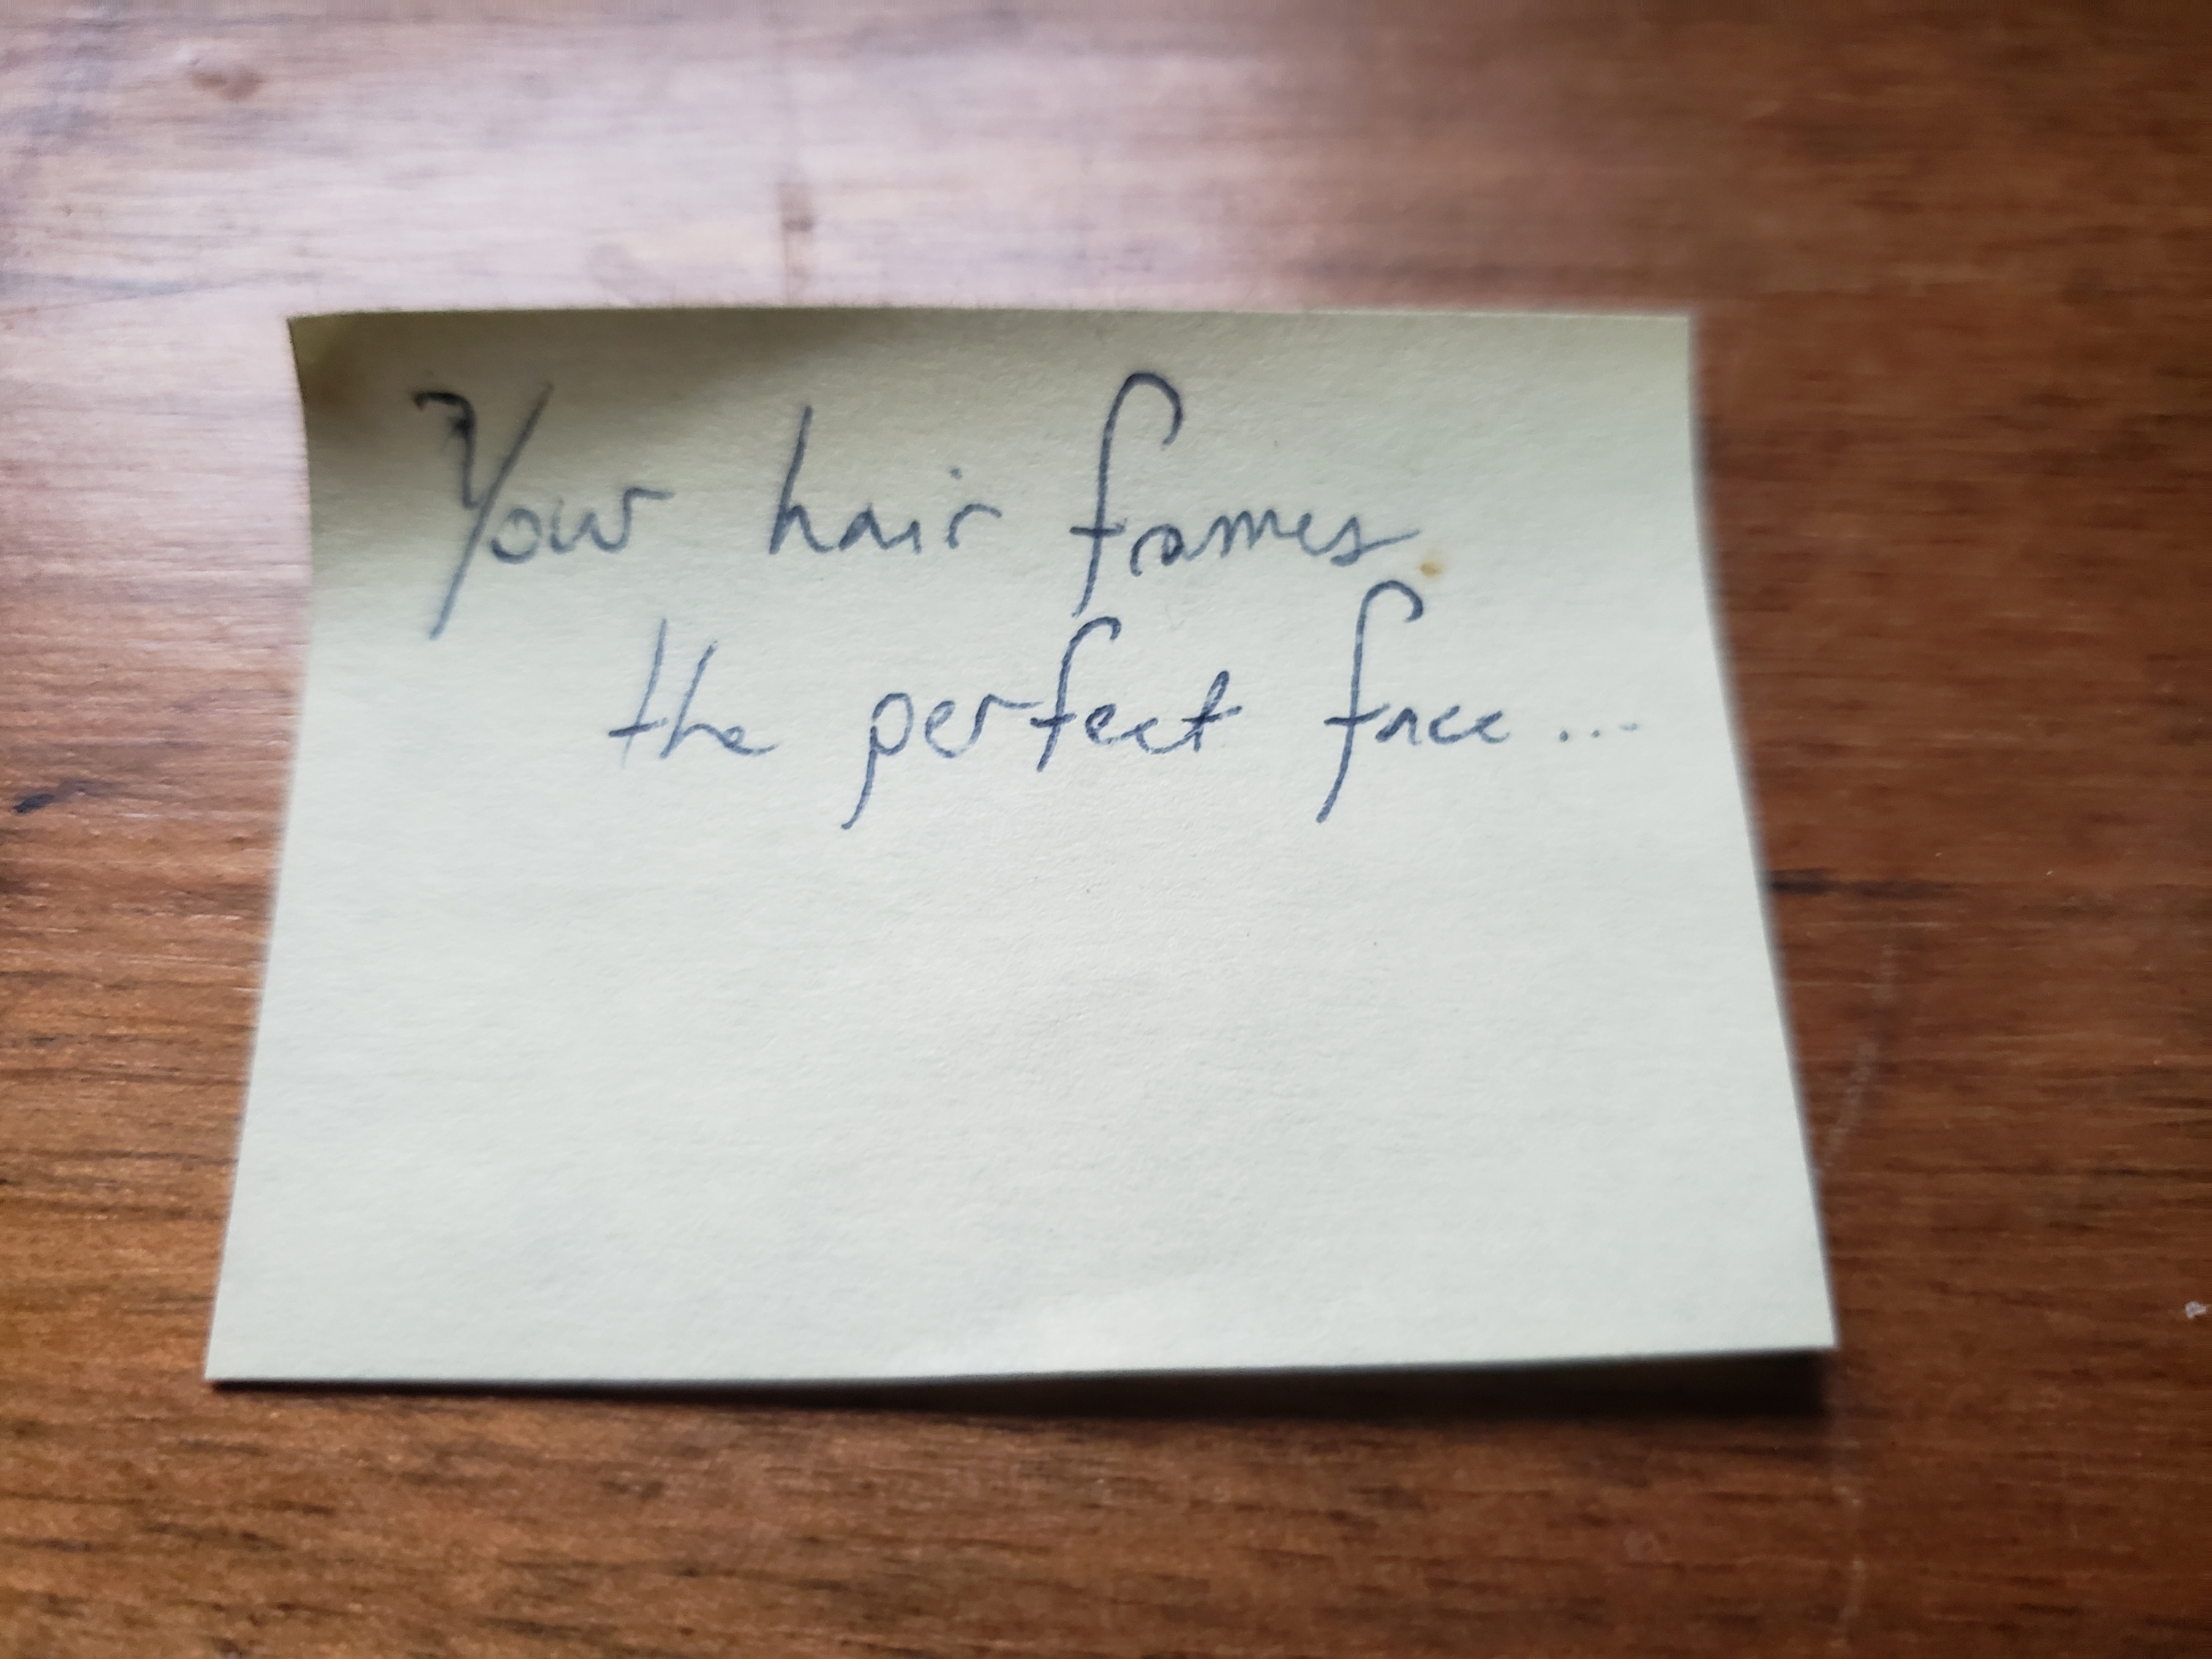 Your hair frames
the perfect face...